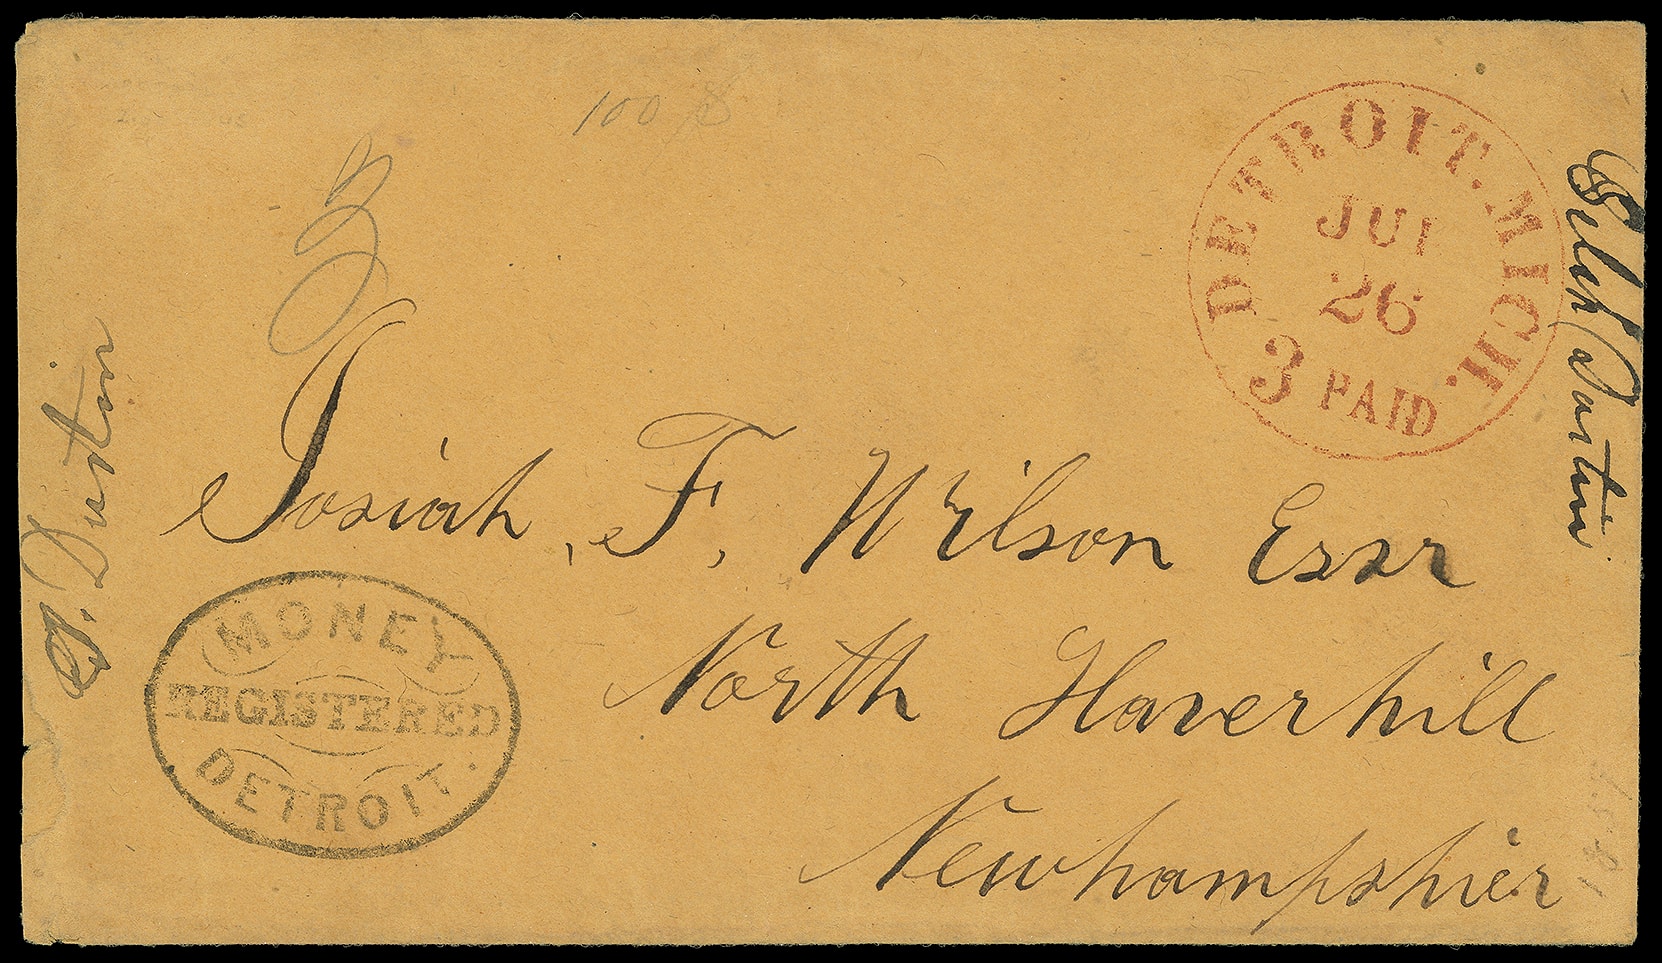 100
DETROIT. MICH.
JUL
26
3 PAID
Josiah, F, Wilson Esqr
North Haverhill
Newhampshier
MONEY
REGISTERED
DETROIT.
Dustin
Dustin